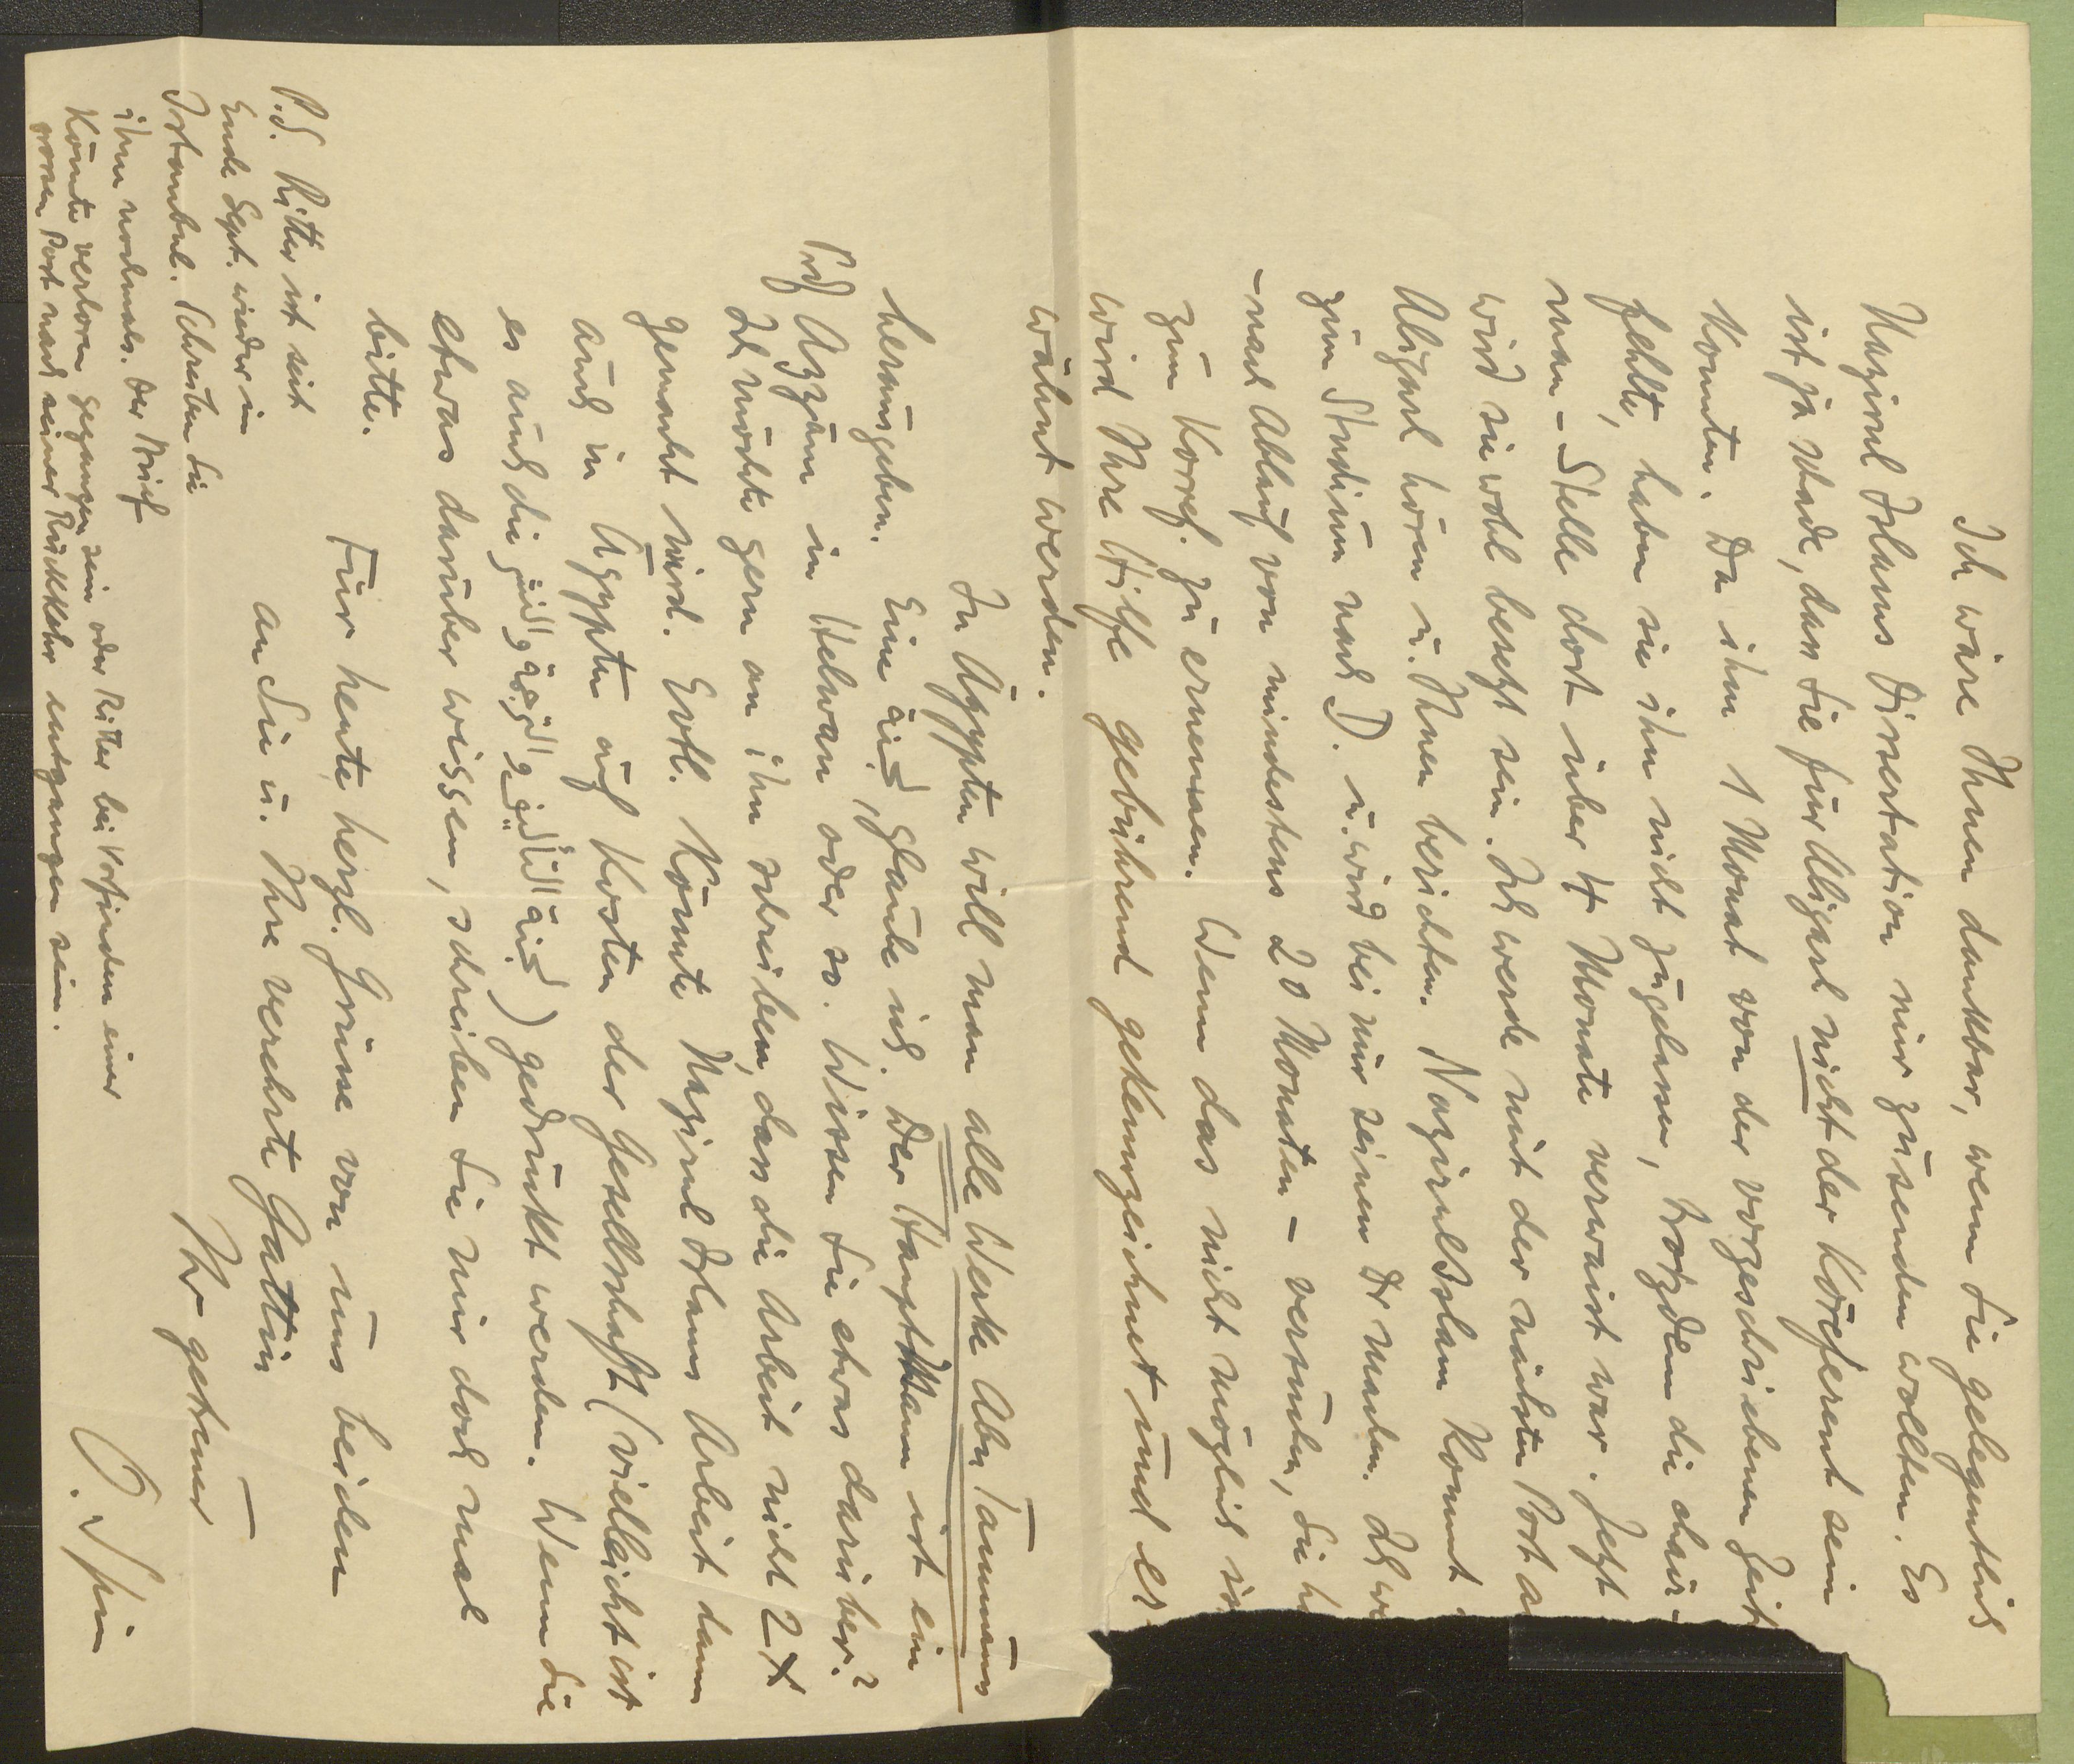 Ich wäre Ihnen dankbar, wenn Sie gelegentlich
Nazirul Islams Dissertation mir zusenden wollten. Es
ist ja schade, dass Sie für Aligarh nicht der Korreferent sein
konnten. Da ihm 1 Monat von der vorgeschriebenen Zeit
fehlte, haben sie ihn nicht zugelassen, trotzdem die chair-
man-Stelle dort über 4 Monate verwaist war. Jetzt
wird sie wohl besetzt sein. Ich werde mit der nächsten Post a
Aligarh hören u. Ihnen berichten. Nazirul Islam kommt
zum Studium nach D. u. wird bei mir seinen Dr machen. Ich we
-nach Ablauf von mindestens 20 Monaten - versuchen, Sie h
zum Korref. zu ernennen. Wenn das nicht möglich is
wird Ihre Hilfe gebührend gekennzeichnet und er-
wähnt werden.
In Ägypten will man alle Werke Abu Tammāms
herausgeben. Eine لجنة, glaube ich. Der Hauptmann ist ein
Prof Azzām in Helwan oder so. Wissen Sie etwas darüber?
Ich möchte gern an ihn schreiben, dass die Arbeit nicht 2x
gemacht wird. Evtl. könnte Nazirul Islams Arbeit dann
auch in Ägypten auf Kosten der Gesellschaft (vielleicht ist
es auch die لجنة التأليف والترجمة والنشر) gedruckt werden. Wenn Sie
etwas darüber wissen, schreiben Sie mir doch mal
bitte.
Für heute herzl. Grüsse von uns beiden
an Sie u. Ihre verehrte Gattin
Ihr getreuer
O. Spies
P.S. Ritter ist seit
Ende Sept. wieder in
Istambul. Schreiben Sie
ihm nochmals. Der Brief
könnte verloren gegangen sein oder Ritter bei Vorfinden einer
Post nach seiner Rückkehr entgangen sein.